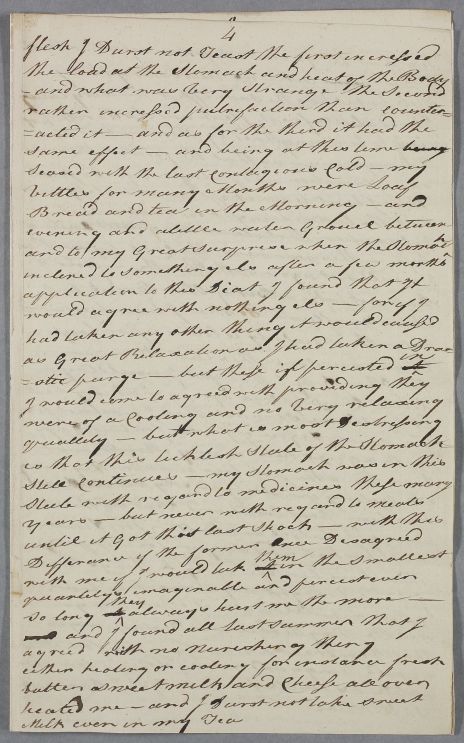 4
flesh I Durst not Teast the first incressed
the load at the Stomach and heat of the Body
- and what was very Strange the Second
rather incressed putrefaction than counter-
-acted it - and as for the third it had the
same effect - and being at this time
Seased with the last Contagious Cold - my
vittles for many Months were Loaf
Bread and tea in the Morning - and
evening and alittle water Gruel between
and to my Great surprise when the Stomach
inclined to something els after a few months
application to this Diat I found that it
would agree with nothing els - for if I
had taken any other thing it would caused
as Great Relaxation as I had taken a Dra-
-stic purge - but these if persisted in
I would come to agreed with providing they
were of a Cooling and no very relaxing
quallity - but what is most Destressing
is that this ticklesh State of the Stomach
Still Continues - my Stomach was in this
State with regard to medicines these many
years - but never with regard to meals
until it Got this last Shock - with this
Differance if the former once Desagreed
with me if I would tak them in the Smallest
quantitys imaginable and percist ever
so long they always hurt me the more -
and I found all last Summer that I
agreed with no nurishing thing
either heating or cooling for instance fresh
butter asweet milk and Cheese all over
heated me - and I Durst not take sweet
Milk even in my Tea